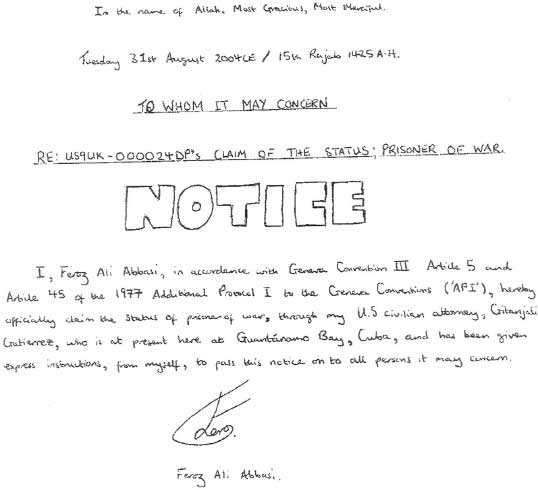 In the name of Allah, Most Gracious, Most Merciful.
Tuesday 31st August 2004CE / 15th Rajab 1425 A.H.
TO WHOM IT MAY CONCERN
RE: US9UK-000024DP's CLAIM OF THE STATUS; PRISONER OF WAR.
NOTICE
I, Feroz Ali Abbasi, in accordance with Geneva Convention III Article 5 and
Article 45 of the 1977 Additional Protocol I to the Geneva Conventions ('API'), hereby
officially claim the status of prisoner of war, through my U.S civilian attorney, Gitanjali
Gutierrez, who is at present here at Guantánamo Bay, Cuba, and has been given
express instructions, from myself, to pass this notice on to all persons it may concern.
Feroz.
Feroz Ali Abbasi.